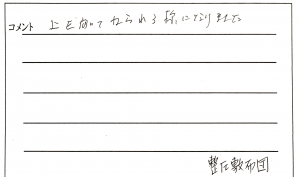 コメント 上を向いてねられる様になりました。
整圧敷布団